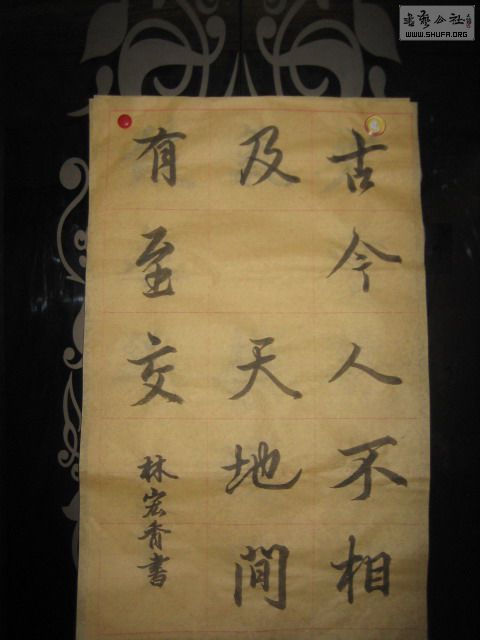 古今人不相
及 天地間
有至交
林宏香書
書藝公社
WWW.SHUFA.ORG